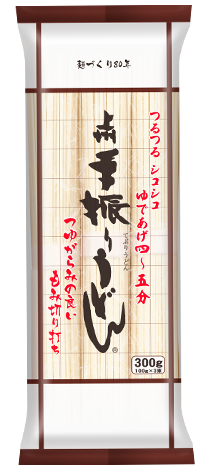 麺づくり80年
つるつる シコシコ
ゆであげ四〜五分
手振りうどん
てぶりうどん
®
つゆがらみの良い
もみ切り打ち
300g
100g×3束